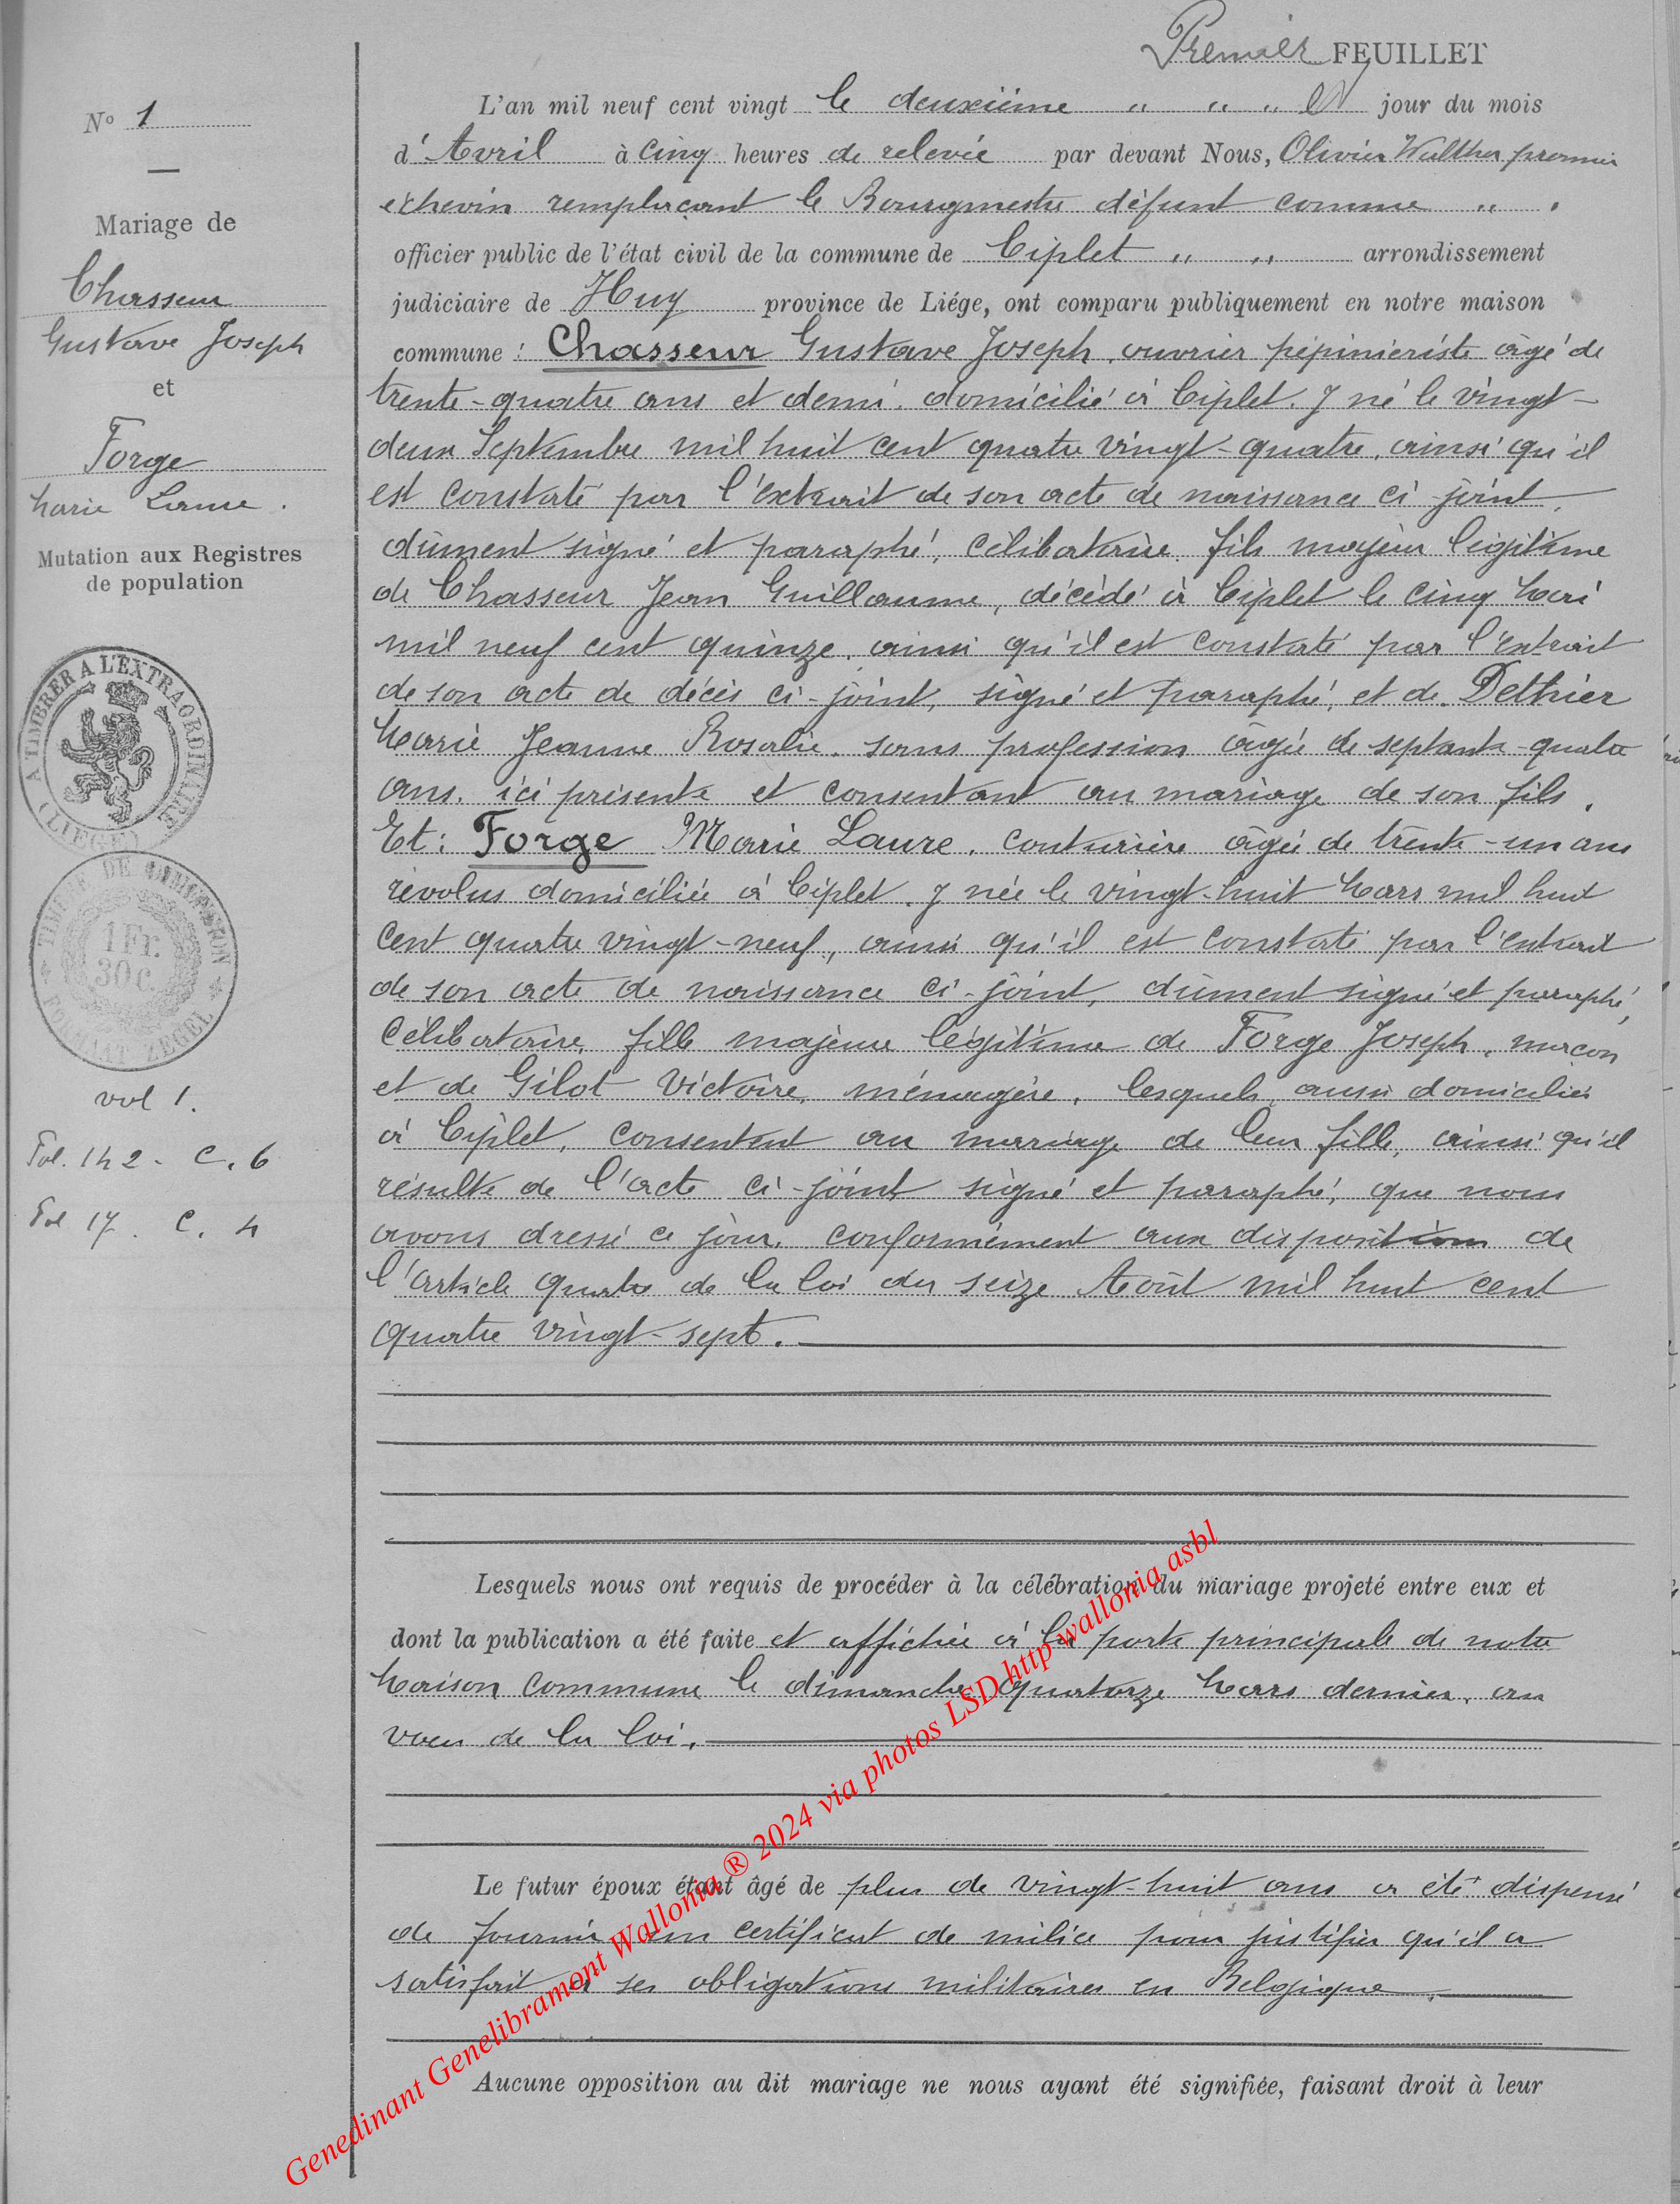 Premier FEUILLET
N° 1
Mariage de
Chasseur
Gustave Joseph
et
Forge
Marie Laure.
Mutation aux Registres
de population
A TIMBRER A L'EXTRAORDINAIRE
(LIEGE)
TIMBRE DE DIMENSION
1 Fr.
30 c.
FORMAAT ZEGEL
vol 1.
Fol. 142 - C. 6
Fol 17. C. 4
L'an mil neuf cent vingt le deuxième " " " jour du mois
d'Avril à cinq heures de relevée par devant Nous, Olivier Walther premier
echevin remplaçant le Bourgmestre défunt comme "
officier public de l'état civil de la commune de Ciplet " " arrondissement
judiciaire de Huy province de Liége, ont comparu publiquement en notre maison
commune : Chasseur Gustave Joseph, ouvrier pépiniériste âgé de
trente-quatre ans et demi, domicilié à Ciplet. y né le vingt-
deux Septembre mil huit cent quatre vingt-quatre, ainsi qu'il
est constaté par l'extrait de son acte de naissance ci-joint,
dûment signé et paraphé, célibataire, fils majeur légitime
de Chasseur Jean Guillaume, décédé à Ciplet le cinq Mai
mil neuf cent quinze, ainsi qu'il est constaté par l'extrait
de son acte de décès ci-joint, signé et paraphé, et de Dethier
Marie Jeanne Rosalie, sans profession âgée de septante-quatre
ans, ici présente et consentant au mariage de son fils.
Et : Forge Marie Laure, couturière âgée de trente-un ans
révolus domiciliée à Ciplet, y née le vingt-huit Mars mil huit
cent quatre vingt-neuf, ainsi qu'il est constaté par l'extrait
de son acte de naissance ci-joint, dûment signé et paraphé,
célibataire, fille majeure légitime de Forge Joseph, maçon
et de Gilot Victoire, ménagère, lesquels, aussi domiciliés
à Ciplet, consentent au mariage de leur fille, ainsi qu'il
résulte de l'acte ci-joint signé et paraphé, que nous
avons dressé ce jour, conformément aux dispositions de
l'article quatre de la loi du seize Août mil huit cent
quatre vingt-sept.
Lesquels nous ont requis de procéder à la célébration du mariage projeté entre eux et
dont la publication a été faite et affichée à la porte principale de notre
Maison Commune le dimanche quatorze Mars dernier, au
vœu de la loi.
Le futur époux étant âgé de plus de vingt-huit ans a été dispensé
de fournir un certificat de milice pour justifier qu'il a
satisfait à ses obligations militaires en Belgique.
Aucune opposition au dit mariage ne nous ayant été signifiée, faisant droit à leur
Genedinant Genelibramont Wallonia ® 2024 via photos LSD http wallonia asbl